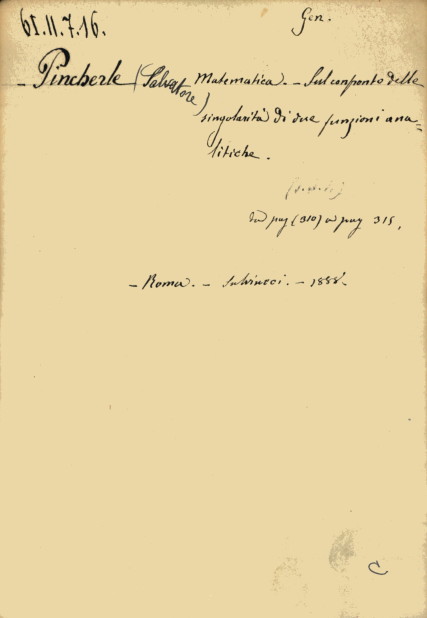 61.11.7.16.
Gen.
Pincherle (Salvatore) Matematica. – Sul confronto delle
singolarità di due funzioni ana=
litiche.
da pag (310) a pag 315.
– Roma. – Salviucci. – 1888.
C